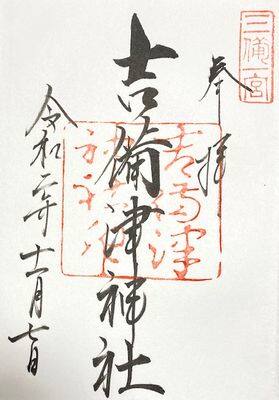 三備宮
奉拝
吉備津神社
吉備津
令和二年十一月七日